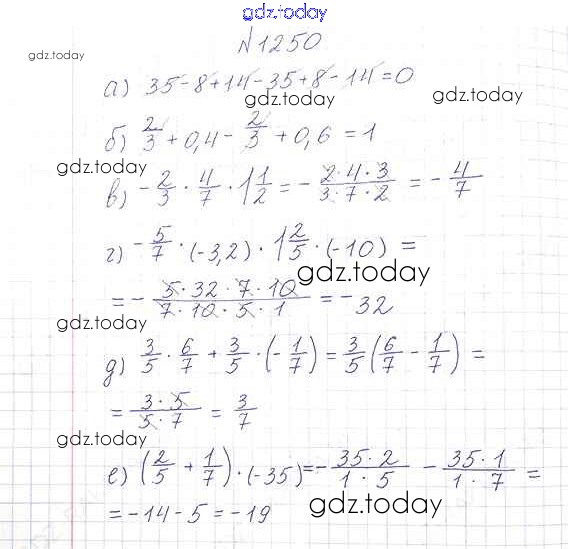 gdz.today
№1250
gdz.today
а) 35-8+14-35+8-14=0
gdz.today gdz.today
б) 2/3 + 0,4 - 2/3 + 0,6 = 1
gdz.today
в) - 2/3 · 4/7 · 1 1/2 = - 2·4·3/3·7·2 = - 4/7
gdz.today
г) - 5/7 · (-3,2) · 1 2/5 · (-10) =
gdz.today
= - 5·32·7·10/7·10·5·1 = -32
gdz.today
д) 3/5 · 6/7 + 3/5 · (- 1/7) = 3/5 (6/7 - 1/7) =
= 3·5/5·7 = 3/7
gdz.today
е) (2/5 + 1/7) · (-35) = - 35·2/1·5 - 35·1/1·7 =
gdz.today
= -14 - 5 = -19